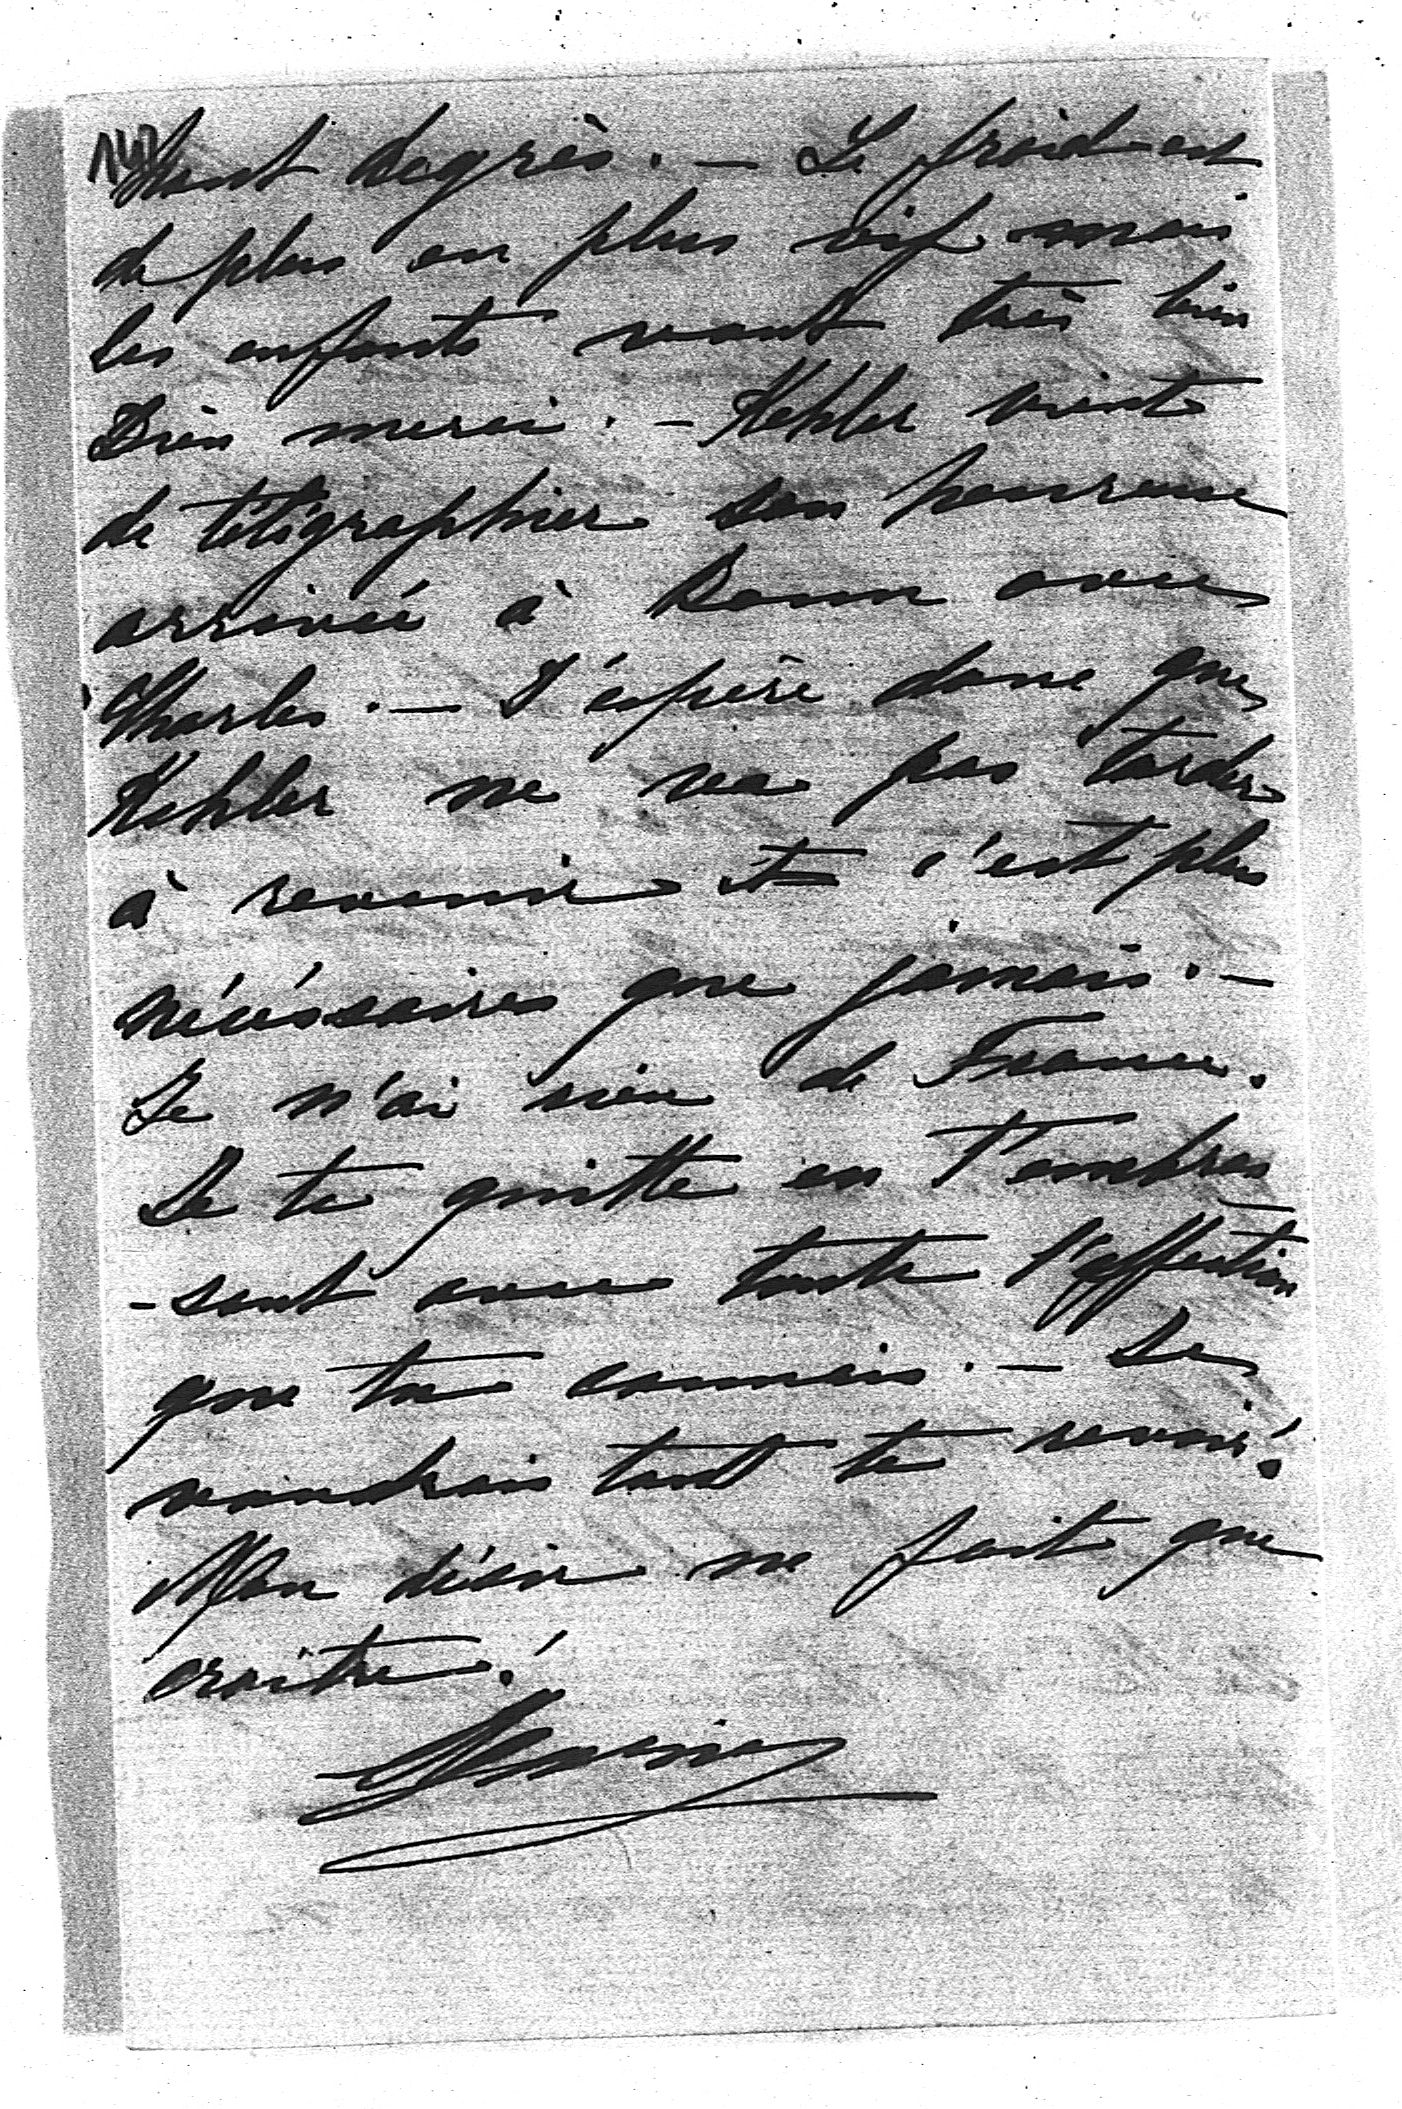 haut degrès. — Le froid est
de plus en plus vif mais
les enfants vont très bien
Dieu merci. — Kehler vient
de télégraphier son heureuse
arrivée à Bonn avec
Charles. — J'espère donc que
Kehler ne va pas tarder
à revenir et c'est plus
nécéssaires que jamais. —
Je n'ai rien de France.
Je te quitte en t'embras
-sant avec toute l'affection
que tu connais. — Je
voudrais tant te revoir!
Mon désir ne fait que
croître!